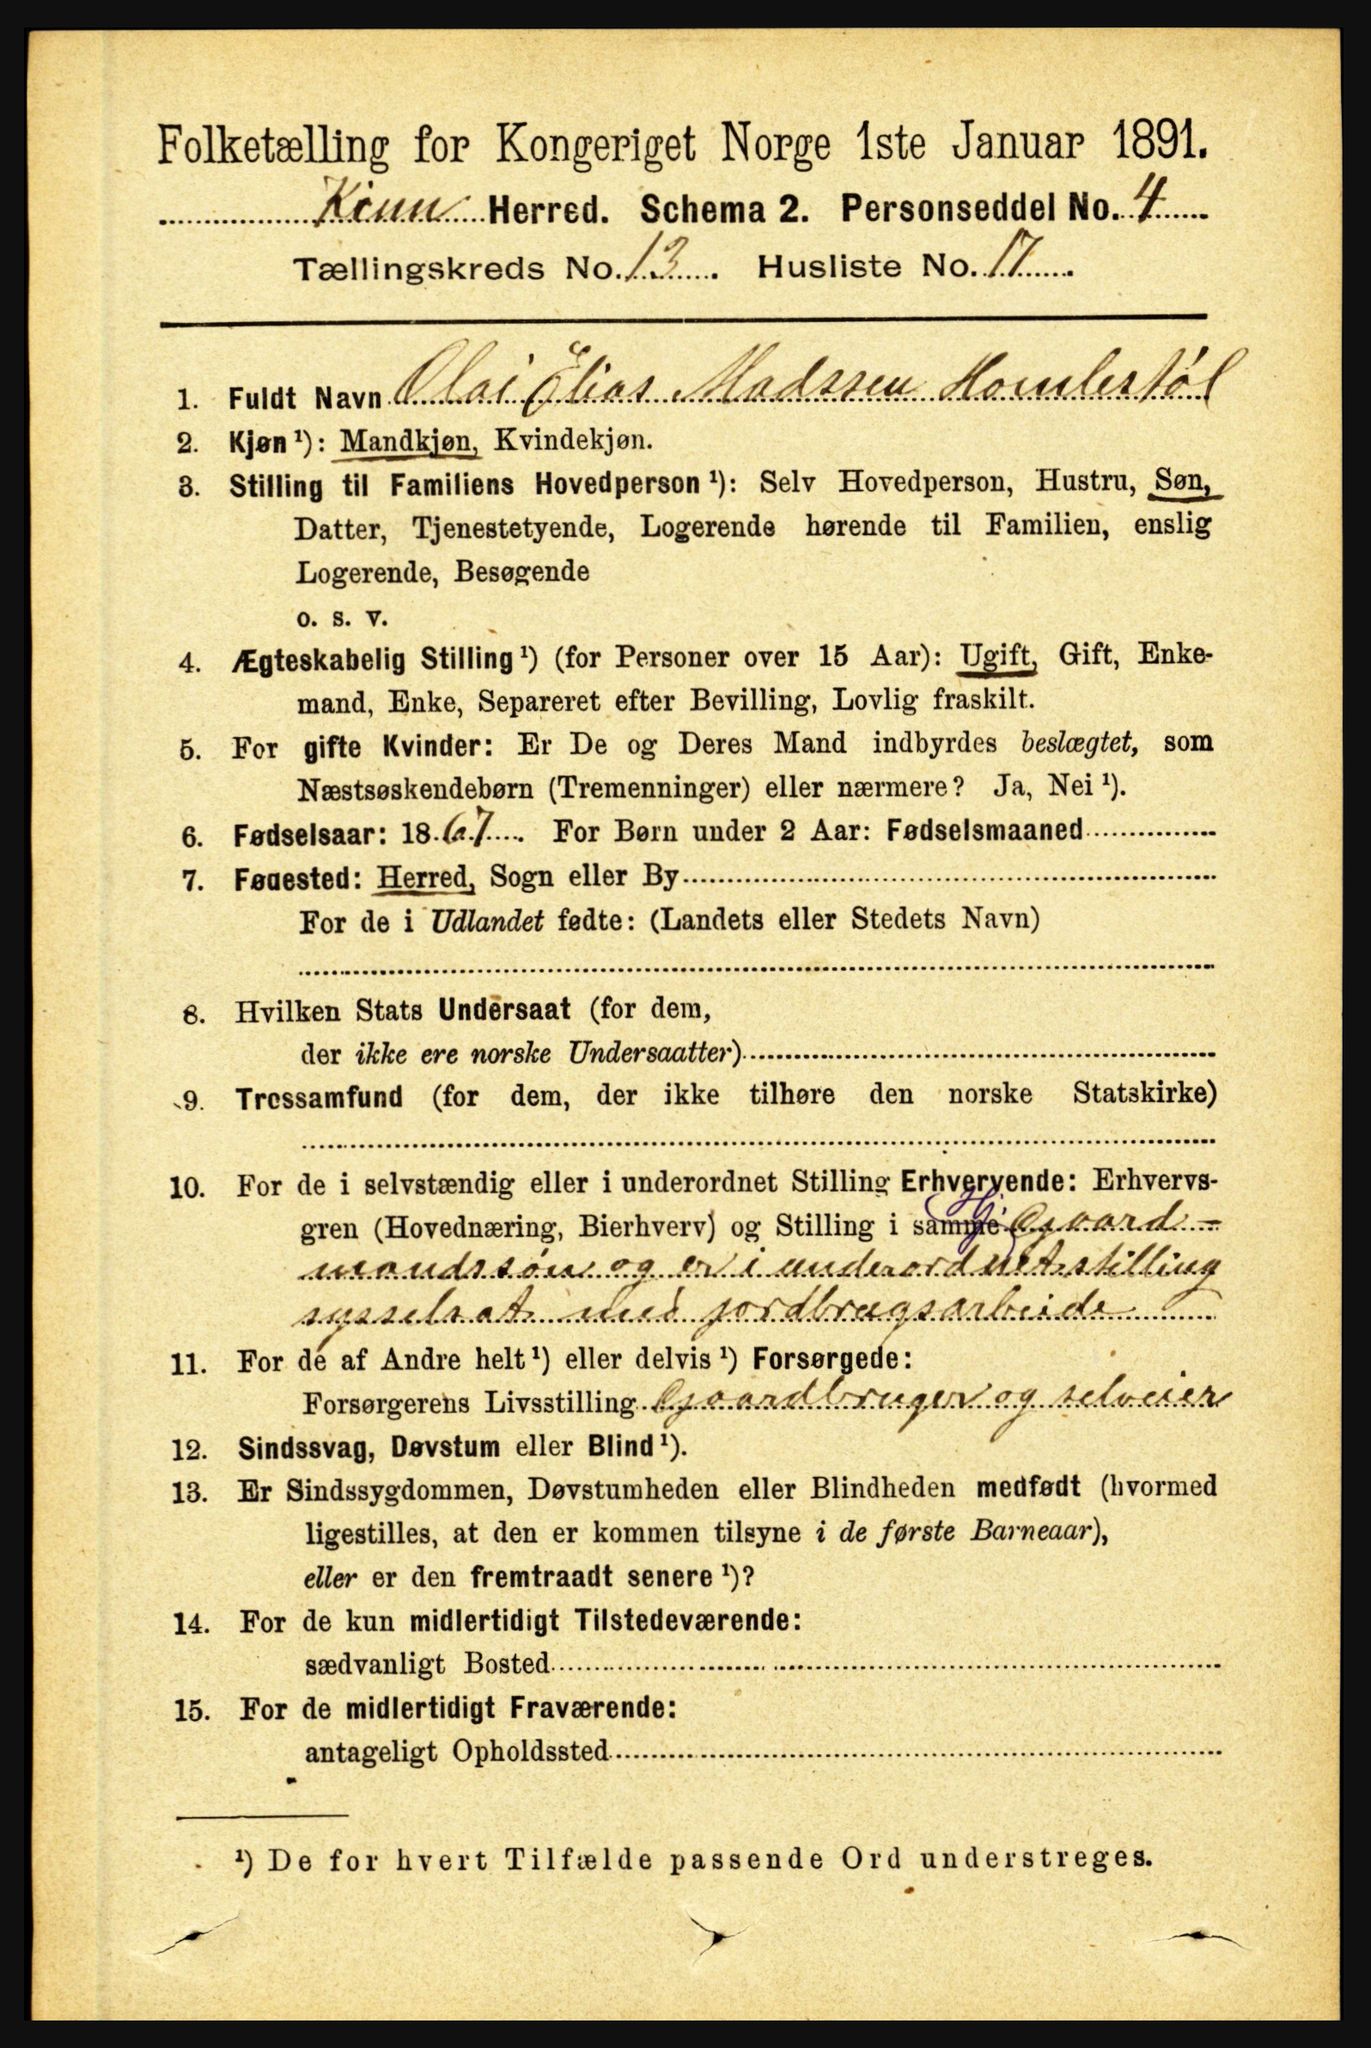 Folketælling for Kongeriget Norge 1ste Januar 1891.
Kinn Herred. Schema 2. Personseddel No. 4
Tællingskreds No. 13. Husliste No. 17
1. Fuldt Navn Olai Elias Madssen Homlestøl
2. Kjøn ¹): Mandkjøn, Kvindekjøn.
3. Stilling til Familiens Hovedperson ¹): Selv Hovedperson, Hustru, Søn,
Datter, Tjenestetyende, Logerende hørende til Familien, enslig
Logerende, Besøgende
o. s. v.
4. Ægteskabelig Stilling ¹) (for Personer over 15 Aar): Ugift, Gift, Enke-
mand, Enke, Separeret efter Bevilling, Lovlig fraskilt.
5. For gifte Kvinder: Er De og Deres Mand indbyrdes beslægtet, som
Næstsøskendebørn (Tremenninger) eller nærmere? Ja, Nei ¹).
6. Fødselsaar: 1867. For Børn under 2 Aar: Fødselsmaaned
7. Fødested: Herred, Sogn eller By
For de i Udlandet fødte: (Landets eller Stedets Navn)
8. Hvilken Stats Undersaat (for dem,
der ikke ere norske Undersaatter)
9. Trossamfund (for dem, der ikke tilhøre den norske Statskirke)
10. For de i selvstændig eller i underordnet Stilling Erhvervende: Erhvervs-
gren (Hovednæring, Bierhverv) og Stilling i samme Gaard-
mandssøn og er i underordnet stilling
sysselsat med jordbrugsarbeide
11. For de af Andre helt ¹) eller delvis ¹) Forsørgede:
Forsørgerens Livsstilling Gaardbruger og selveier
12. Sindssvag, Døvstum eller Blind ¹).
13. Er Sindssygdommen, Døvstumheden eller Blindheden medfødt (hvormed
ligestilles, at den er kommen tilsyne i de første Barneaar),
eller er den fremtraadt senere ¹)?
14. For de kun midlertidigt Tilstedeværende:
sædvanligt Bosted
15. For de midlertidigt Fraværende:
antageligt Opholdssted
¹) De for hvert Tilfælde passende Ord understreges.